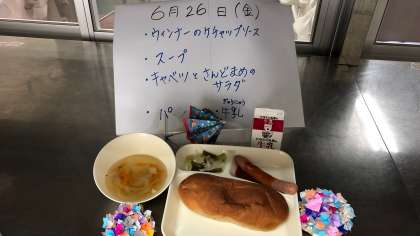 6月26日(金)
・ウィンナーのケチャップソース
・スープ
・キャベツとさんどまめの
サラダ
・パ
ぎゅうにゅう
・牛乳